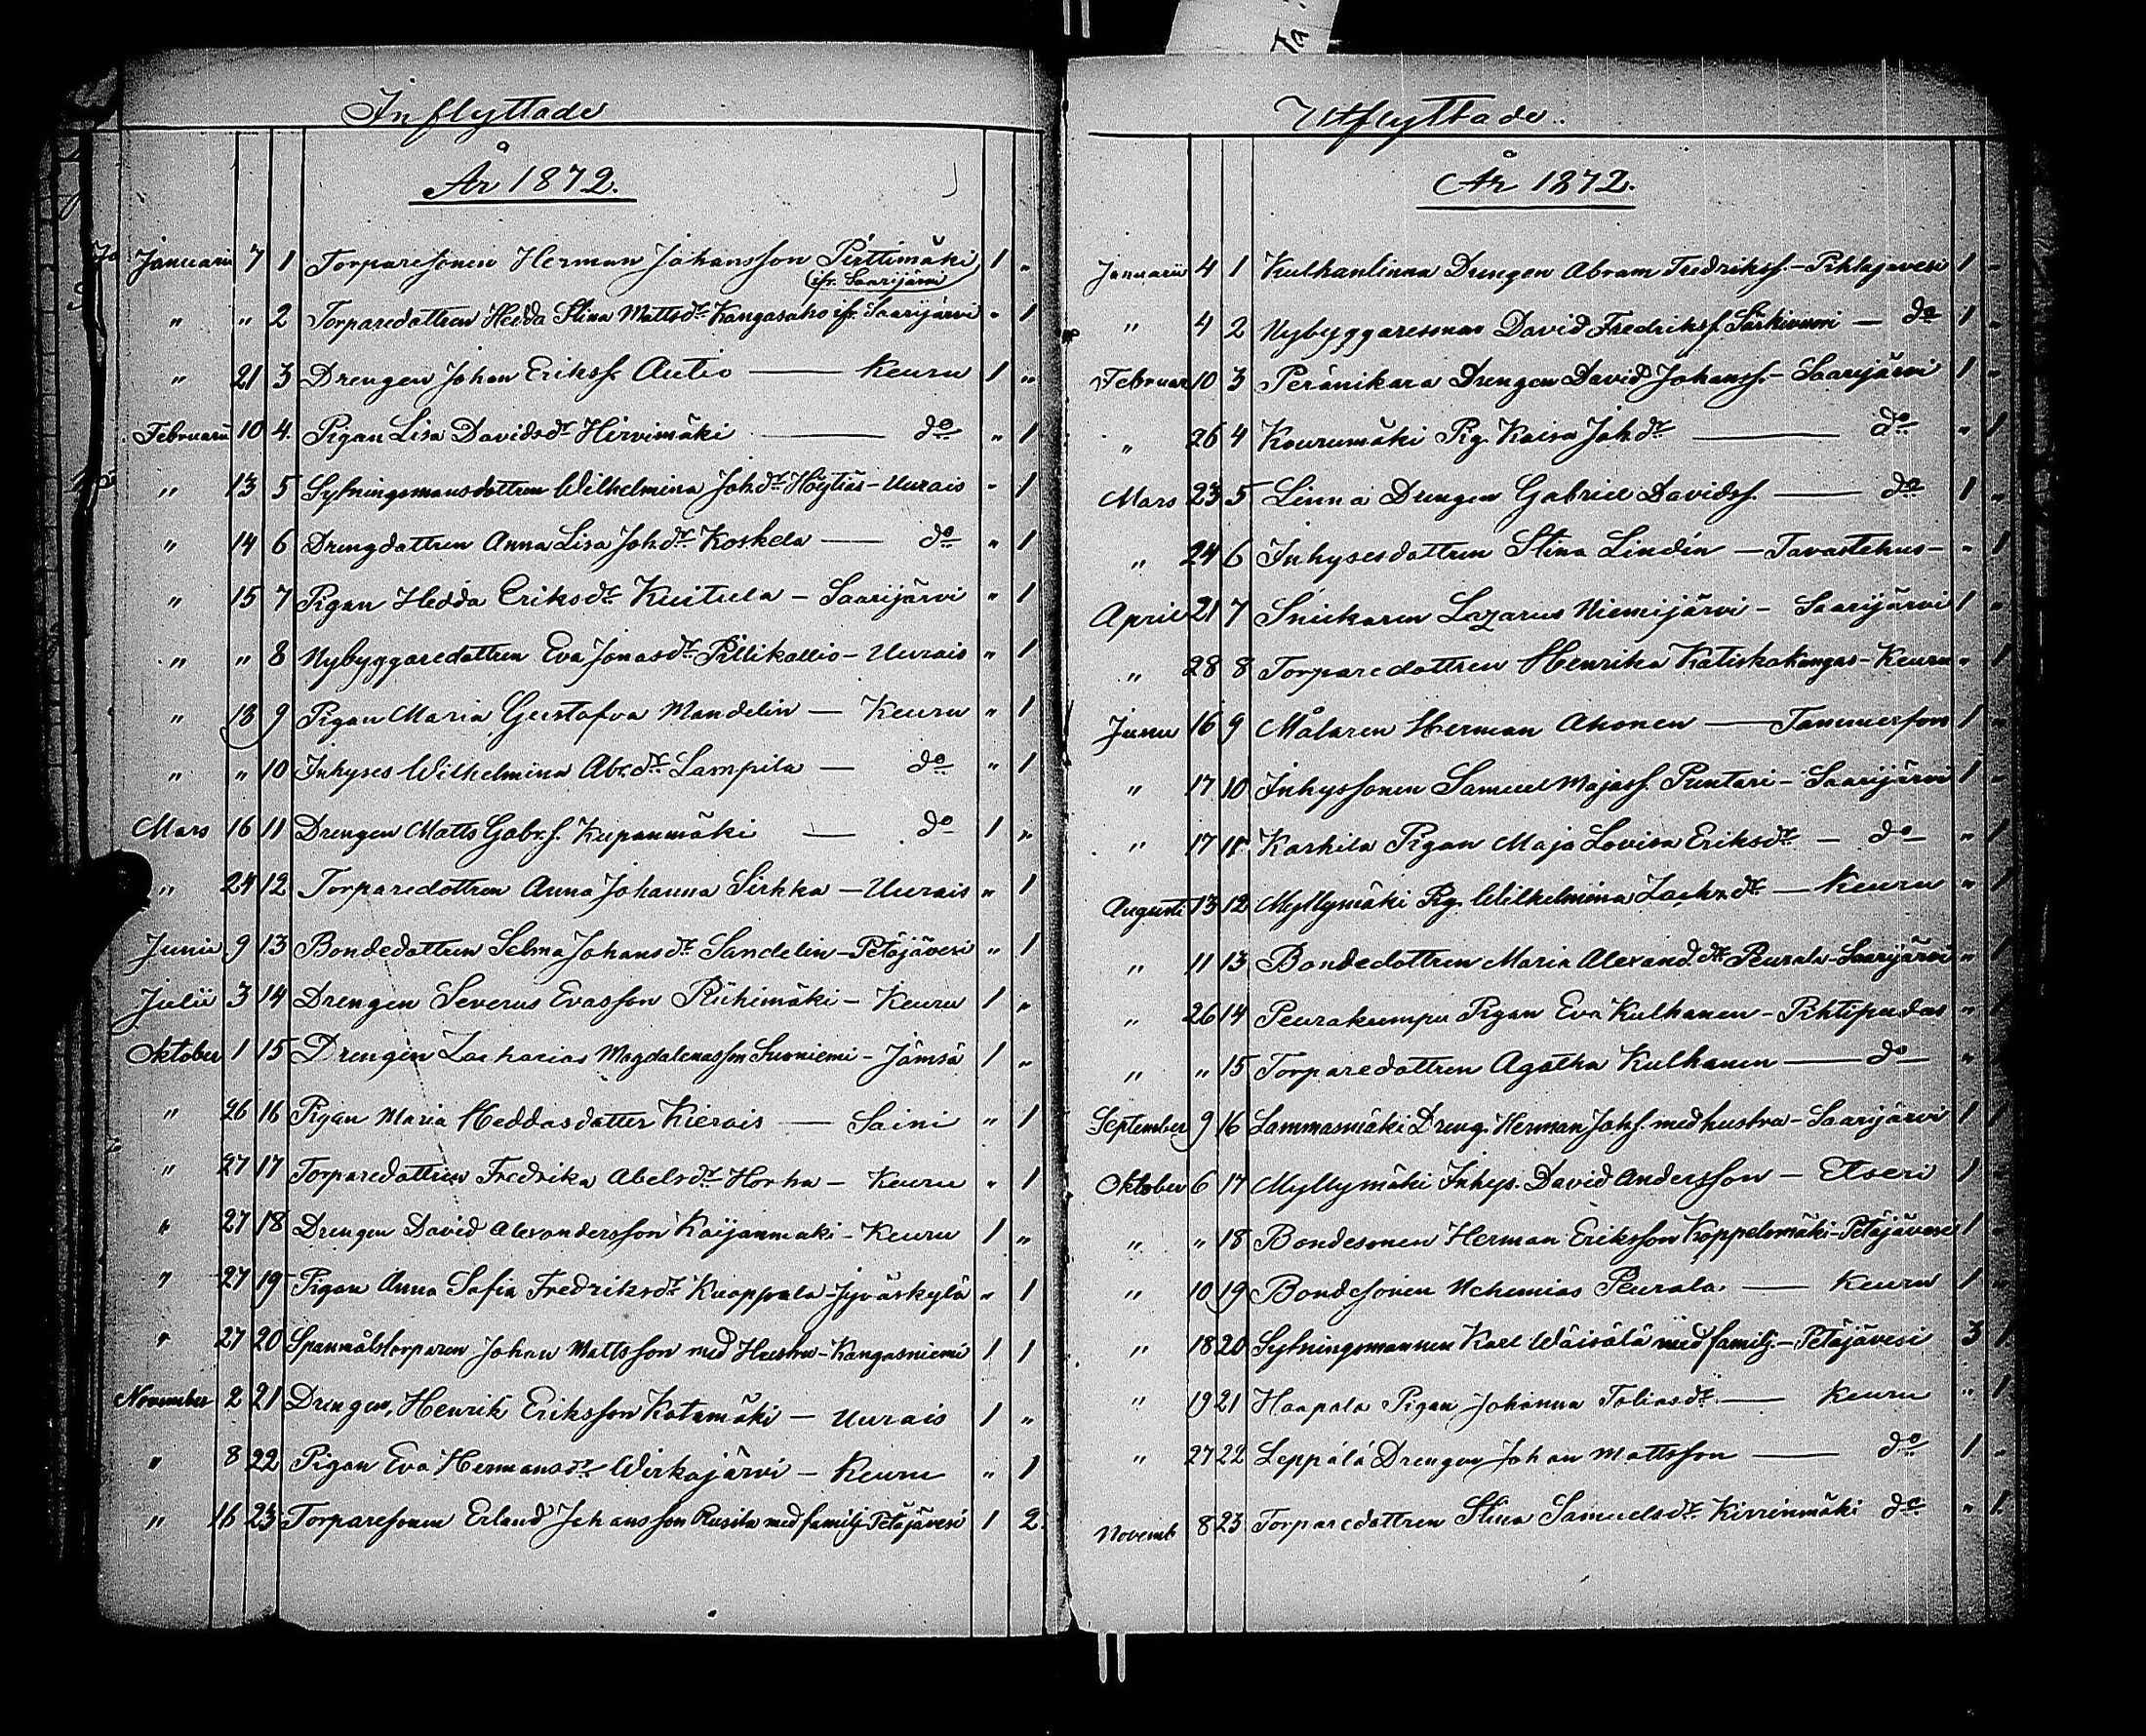 Inflyttade
År 1872.
Januarii 7 1 Torparesonen Herman Johansson Pirttimäki 1 "
ifr. Saarijärvi
" " 2 Torparedottren Hedda Stina Mattsdr Kangasaho ifr. Saarijärvi " 1
" 21 3 Drengen Johan Erikss. Autio — Keuru 1 "
Februarii 10 4 Pigan Lisa Davidsdr Hirvimäki — do " 1
" 13 5 Sytningsmansdottren Wilhelmina Joh.dr Höytiäs - Uurais " 1
" 14 6 Drengdottren Anna Lisa Joh.dr Koskela — do " 1
" 15 7 Pigan Hedda Eriksdr Kuitula - Saarijärvi " 1
" " 8 Nybyggaredottren Eva Jonasdr Pillikallio - Uurais " 1
" 18 9 Pigan Maria Gustafva Mandelin — Keuru " 1
" " 10 Inhyses Wilhelmina Abr.dr Lampila — do " 1
Mars 16 11 Drengen Matts Gabr.s. Kupanmäki — do 1 "
" 24 12 Torparedottren Anna Johanna Sirkka - Uurais " 1
Junii 9 13 Bondedottren Selma Johansdr Sandelin - Petäjävesi " 1
Julii 3 14 Drengen Severus Evasson Riihimäki - Keuru 1 "
Oktober 1 15 Drengen Zacharias Magdalenasson Suoniemi - Jämsä 1 "
" 26 16 Pigan Maria Heddasdotter Kierais — Saini " 1
" 27 17 Torparedottren Fredrika Abelsdr Horha - Keuru " 1
" 27 18 Drengen David Alexandersson Kaijanmäki - Keuru 1 "
" 27 19 Pigan Anna Sofia Fredriksdr Kuoppala - Jyväskylä " 1
" 27 20 Spanmålstorparen Johan Mattsson med Hustru - Kangasniemi 1 1
November 2 21 Drengen Henrik Eriksson Katamäki - Uurais 1 "
" 8 22 Pigan Eva Hermansdr Wirkajärvi - Keuru " 1
" 16 23 Torparesonen Erland Johansson Rusila med familj - Petäjävesi 1 2
Utflyttade.
År 1872.
Januarii 4 1 Kulhanlinna Drengen Abram Fredrikss. - Pihlajavesi 1 "
" 4 2 Nybyggaresonen David Fredrikss. Särkivuori — do 1 "
Februar 10 3 Peränikara Drengen David Johanss. - Saarijärvi 1 "
" 26 4 Kourumäki Pig. Kaisa Joh.dr — do " 1
Mars 23 5 Linna Drengen Gabriel Davidss. — do 1 "
" 24 6 Inhysesdottren Stina Lindén - Tavastehus - " 1
April 21 7 Snickaren Lazarus Niemijärvi - Saarijärvi 1 "
" 28 8 Torparedottren Henrika Katiskakangas - Keuru " 1
Junii 16 9 Målaren Herman Ahonen — Tammerfors 1 "
" 17 10 Inhyssonen Samuel Majass. Puntari - Saarijärvi 1 "
" 17 11 Karhila Pigan Maja Lovisa Eriksdr — do " 1
Augusti 13 12 Myllymäki Pig. Wilhelmina Zach.dr — Keuru " 1
" 11 13 Bondedottren Maria Alexand.dr Peurala - Saarijärvi " 1
" 26 14 Peurakumpu Pigan Eva Kulhanen - Pihtipudas " 1
" " 15 Torparedottren Agatha Kulhanen — do " 1
September 9 16 Lammasmäki Dreng. Herman Johs. med hustru - Saarijärvi 1 1
Oktober 6 17 Myllymäki Inhys. David Andersson - Etseri 1 "
" " 18 Bondesonen Herman Eriksson Koppelomäki - Petäjävesi 1 "
" 10 19 Bondesonen Nehemias Peurala — Keuru 1 "
" 18 20 Sytningsmannen Karl Wäisälä med familj. - Petäjävesi 3 1
" 19 21 Haapala Pigan Johanna Tobiasdr — Keuru " 1
" 27 22 Leppälä Drengen Johan Mattsson — do 1 "
Novemb 8 23 Torparedottren Stina Samuelsdr Kirrinmäki do " 1